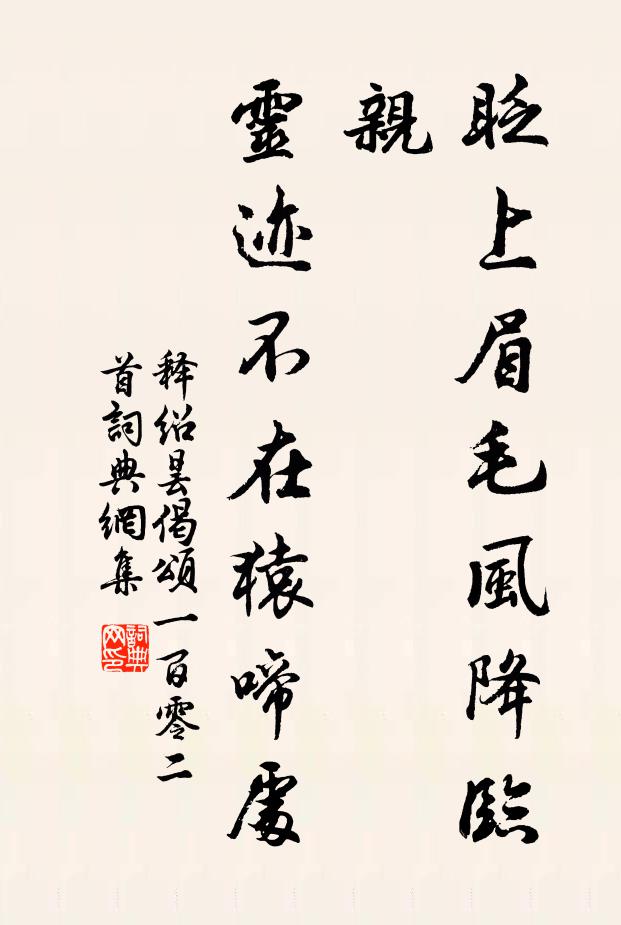 眨上眉毛風降臨
親
靈迹不在猿啼處
釋紹昙偈頌一百零二
首詞典網集
詞典
网印